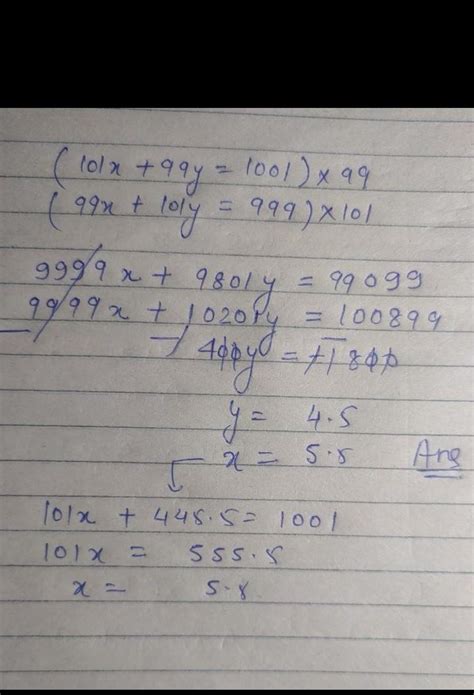 (101x + 99y = 1001) × 99
(99x + 101y = 999) × 101
9999x + 9801y = 99099
9999x + 10201y = 100899
− − −
400y = +1800
y = 4.5
x = 5.5 Ans
101x + 445.5 = 1001
101x = 555.5
x = 5.5